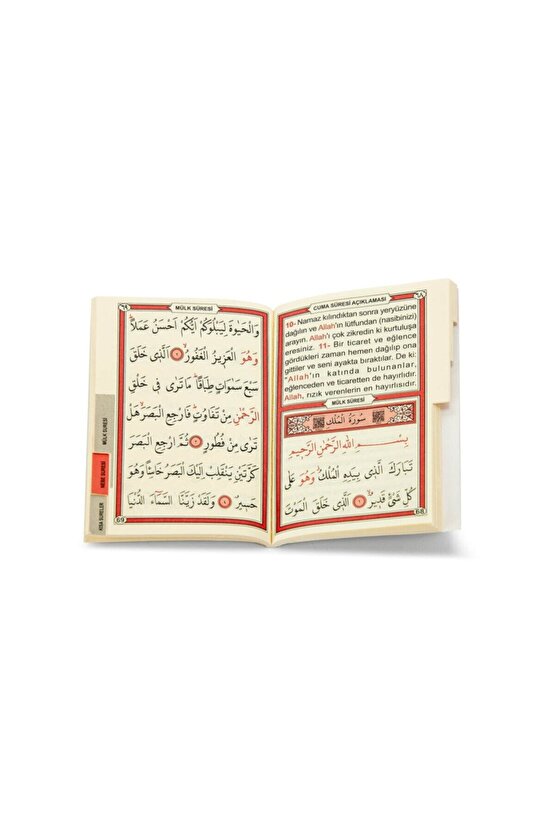 CUMA SÛRESİ AÇIKLAMASI
٦٨
10- Namaz kılındıktan sonra yeryüzüne
dağılın ve Allah'ın lütfundan (nasibinizi)
arayın. Allah'ı çok zikredin ki kurtuluşa
eresiniz. 11- Bir ticaret ve eğlence
gördükleri zaman hemen dağılıp ona
gittiler ve seni ayakta bıraktılar. De ki:
"Allah'ın katında bulunanlar,
eğlenceden ve ticaretten de hayırlıdır.
Allah, rızık verenlerin en hayırlısıdır.
MÜLK SÛRESİ
سُورَةُ الْمُلْكِ
بِسْمِ اللّٰهِ الرَّحْمٰنِ الرَّحِيمِ
تَبَارَكَ الَّذٖى بِيَدِهِ الْمُلْكُ وَهُوَ عَلٰى
كُلِّ شَىْءٍ قَدٖيرٌ اَلَّذٖى خَلَقَ الْمَوْتَ
68
٦٩
MÜLK SÛRESİ
وَالْحَيٰوةَ لِيَبْلُوَكُمْ اَيُّكُمْ اَحْسَنُ عَمَلًا
وَهُوَ الْعَزٖيزُ الْغَفُورُ اَلَّذٖى خَلَقَ
سَبْعَ سَمٰوَاتٍ طِبَاقًا مَا تَرٰى فٖى خَلْقِ
الرَّحْمٰنِ مِنْ تَفَاوُتٍ فَارْجِعِ الْبَصَرَ هَلْ
تَرٰى مِنْ فُطُورٍ ثُمَّ ارْجِعِ الْبَصَرَ
كَرَّتَيْنِ يَنْقَلِبْ اِلَيْكَ الْبَصَرُ خَاسِئًا وَهُوَ
حَسٖيرٌ وَلَقَدْ زَيَّنَّا السَّمَاءَ الدُّنْيَا
69
MÜLK SURESİ
NEBE SURESİ
KISA SURELER